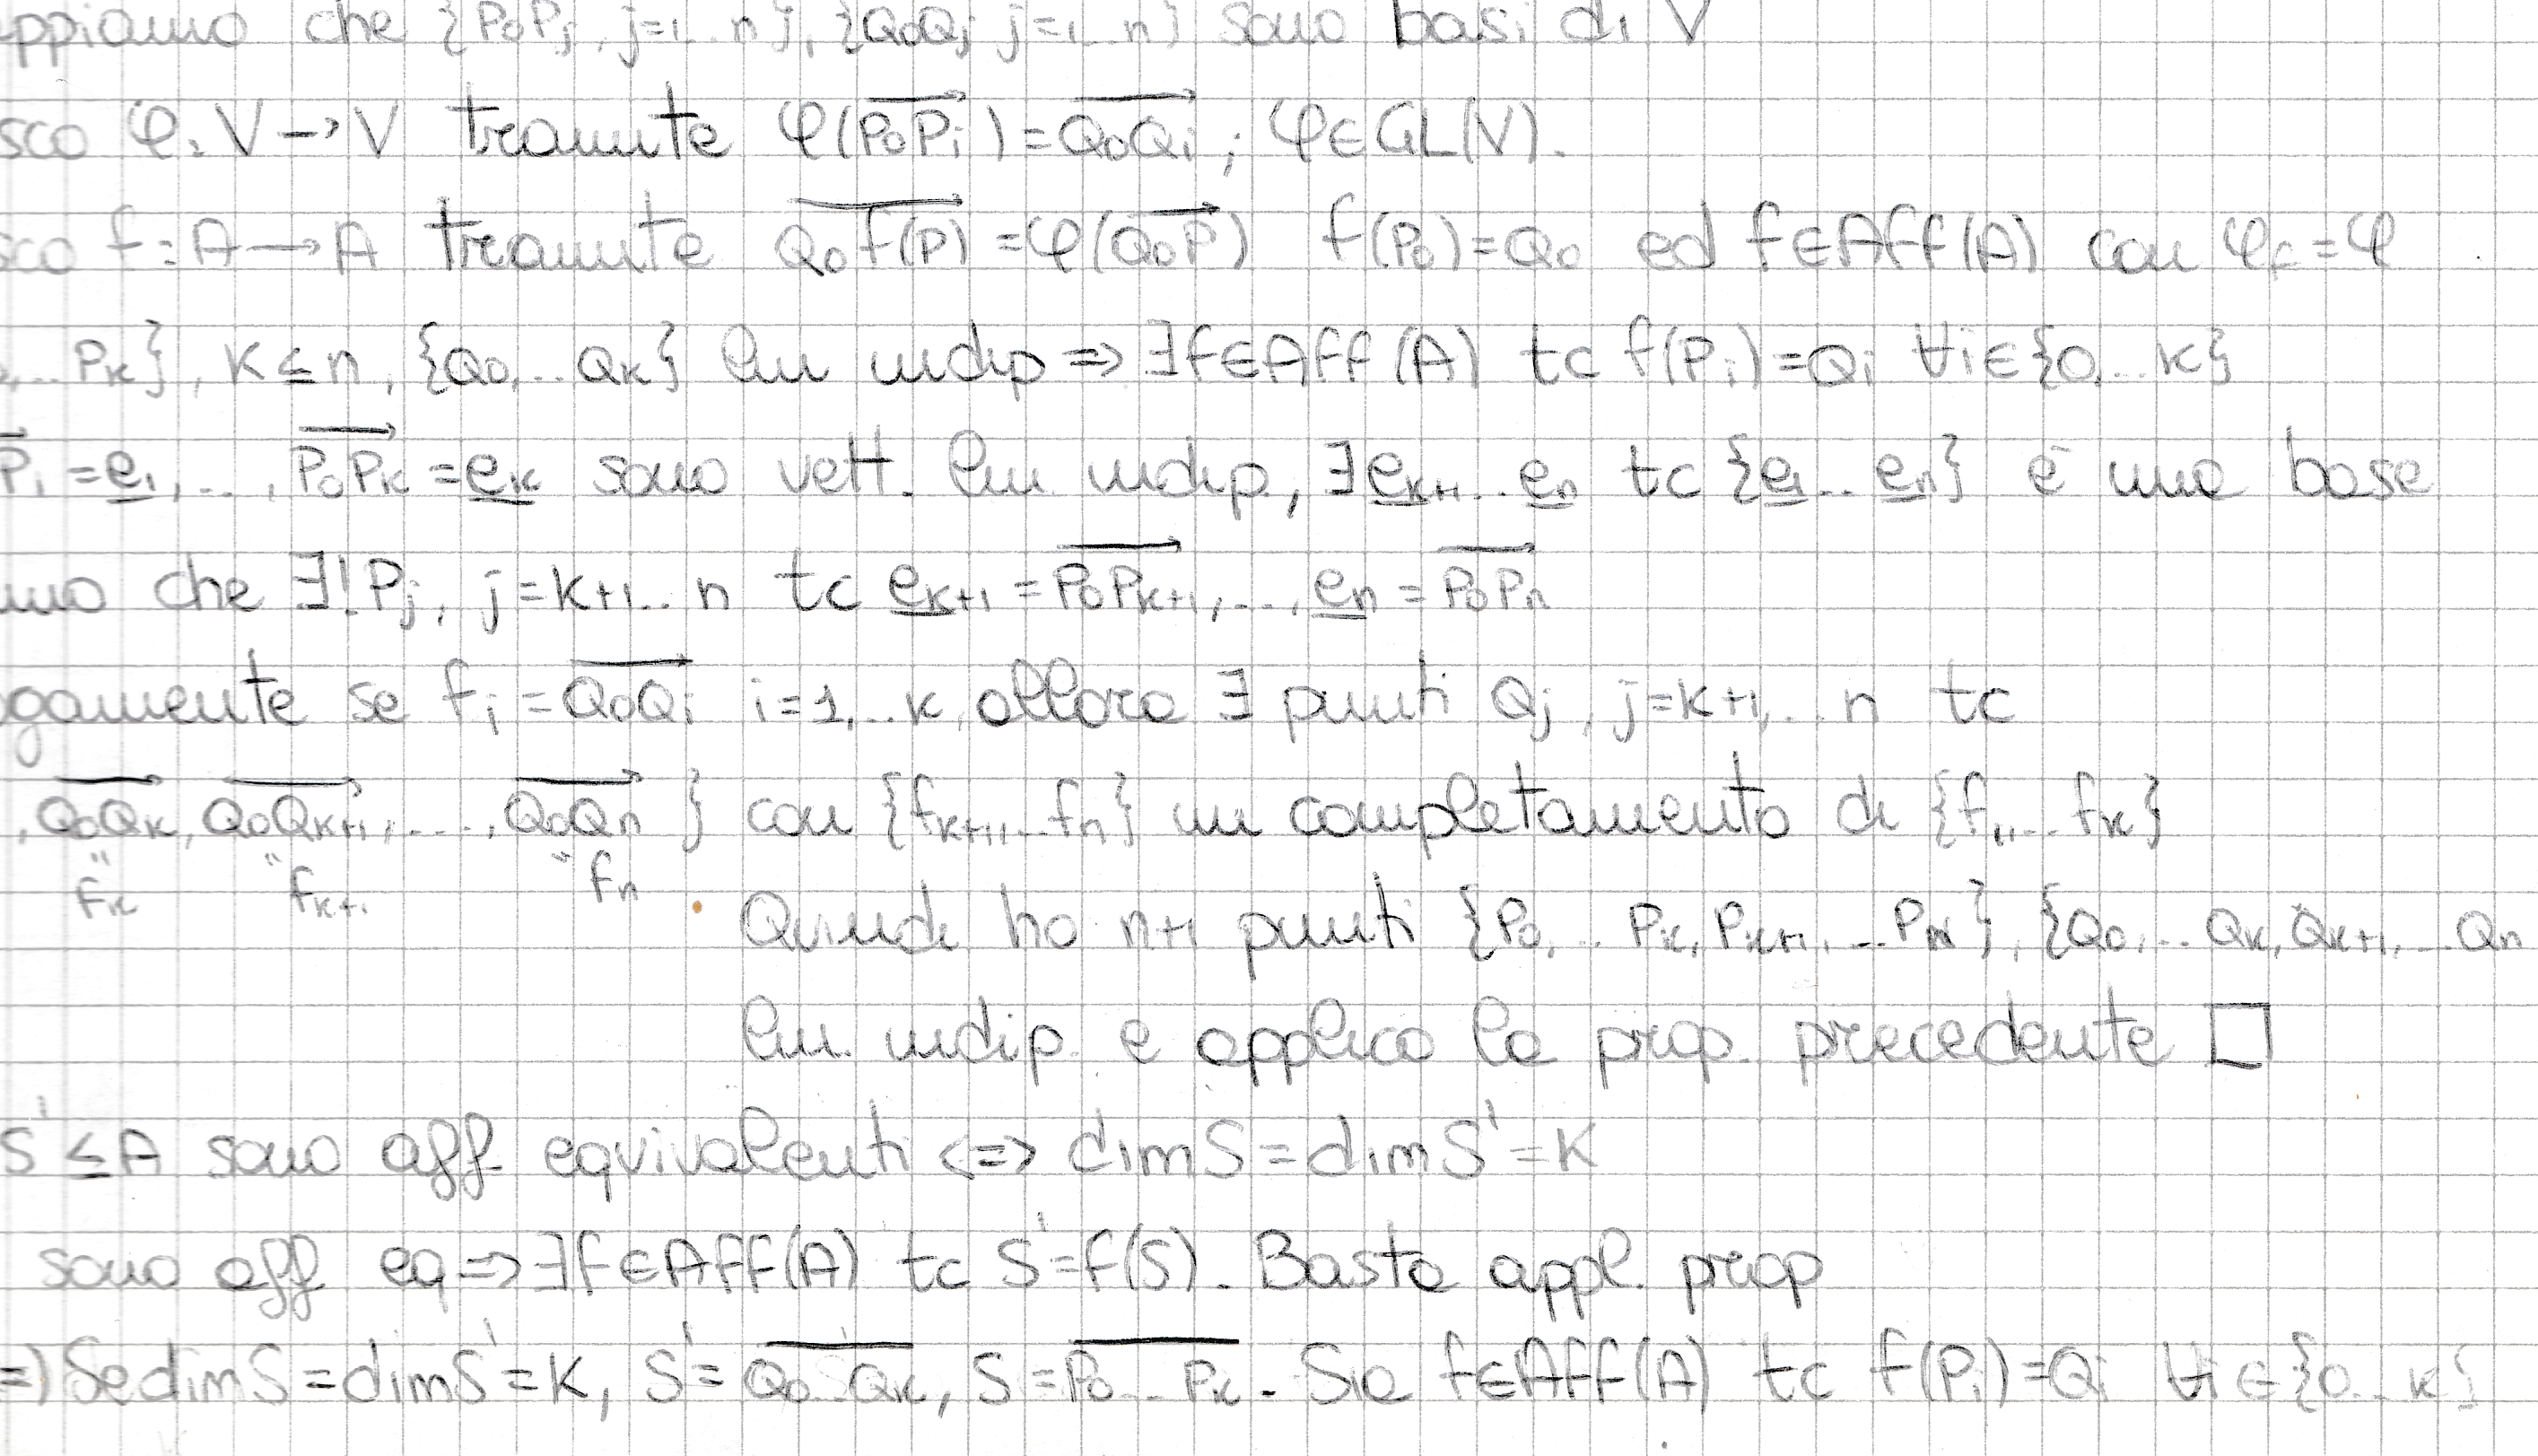 ppiamo che {P₀Pⱼ, j=1...n}, {Q₀Qⱼ j=1...n} sono basi di V
sco φ: V→V tramite φ(P₀Pᵢ) = Q₀Qᵢ ; φ∈GL(V).
sco f: A→A tramite Q₀f(P) = φ(Q₀P) f(P₀)=Q₀ ed f∈Aff(A) con φ_f=φ
... Pₖ}, K≤n, {Q₀,...Qₖ} lin indip => ∃f∈Aff(A) tc f(Pᵢ)=Qᵢ ∀i∈{0,...k}
Pᵢ = e₁,..., P₀Pₖ = eₖ sono vett. lin indip, ∃eₖ₊₁...eₙ tc {e₁...eₙ} è una base
mo che ∃!Pⱼ, j=k+1...n tc eₖ₊₁ = P₀Pₖ₊₁,..., eₙ = P₀Pₙ
ogamente se fᵢ = Q₀Qᵢ i=1,...k, allora ∃ punti Qⱼ, j=k+1,...n tc
, Q₀Qₖ, Q₀Qₖ₊₁, ..., Q₀Qₙ } con {fₖ₊₁,...fₙ} un completamento di {f₁,...fₖ}
" fₖ " fₖ₊₁ " fₙ
Quindi ho n+1 punti {P₀,...Pₖ, Pₖ₊₁, ...Pₙ}, {Q₀,...Qₖ, Qₖ₊₁,...Qₙ
lin. indip. e applico la prop. precedente □
S' ≤ A sono aff. equivalenti <=> dimS = dimS' = K
sono aff eq => ∃f∈Aff(A) tc S'=f(S). Basta appl. prop
=) Se dimS = dimS' = K, S' = Q₀...Qₖ, S = P₀...Pₖ. Sia f∈Aff(A) tc f(Pᵢ)=Qᵢ ∀i∈{0...k}